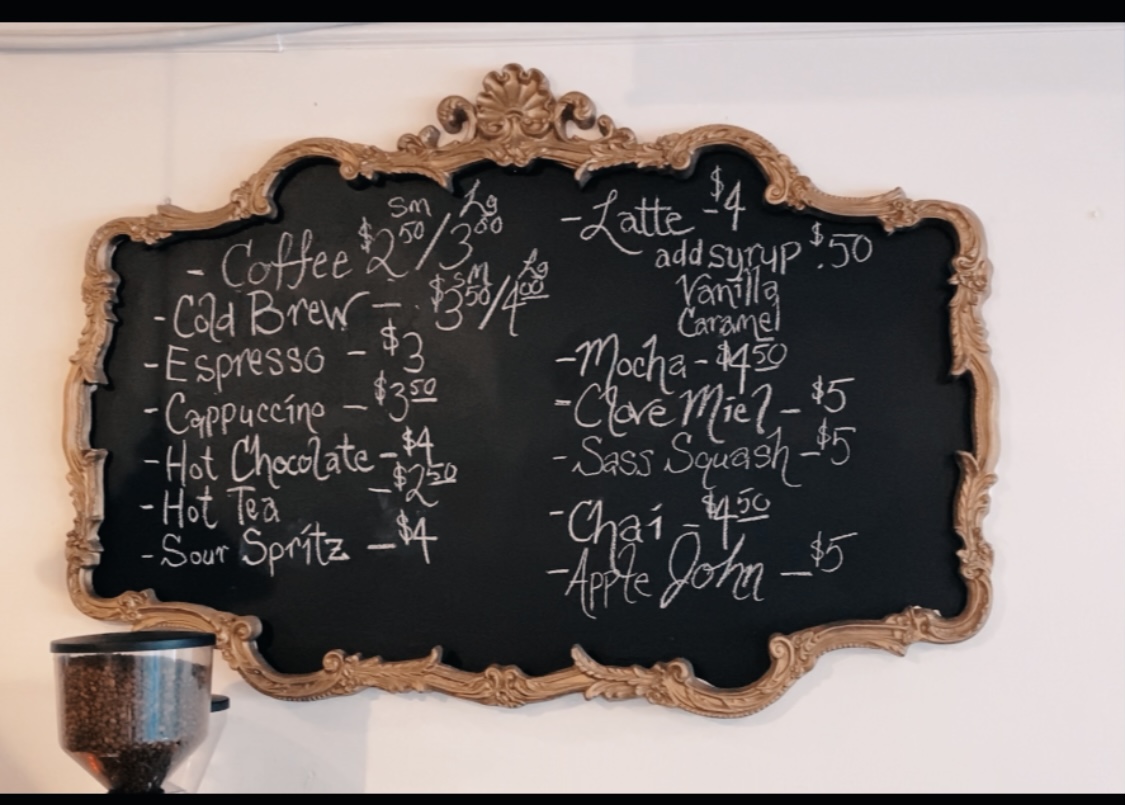 - Coffee $2 50 Sm / 3 00 Lg
- Cold Brew - $3 50 Sm / 4 00 Lg
- Espresso - $3
- Cappuccino - $3 50
- Hot Chocolate - $4
- Hot Tea - $2 50
- Sour Spritz - $4
- Latte - $4
add syrup $.50
Vanilla
Caramel
- Mocha - $4 50
- Clove Miel - $5
- Sass Squash - $5
- Chai - $4 50
- Apple John - $5